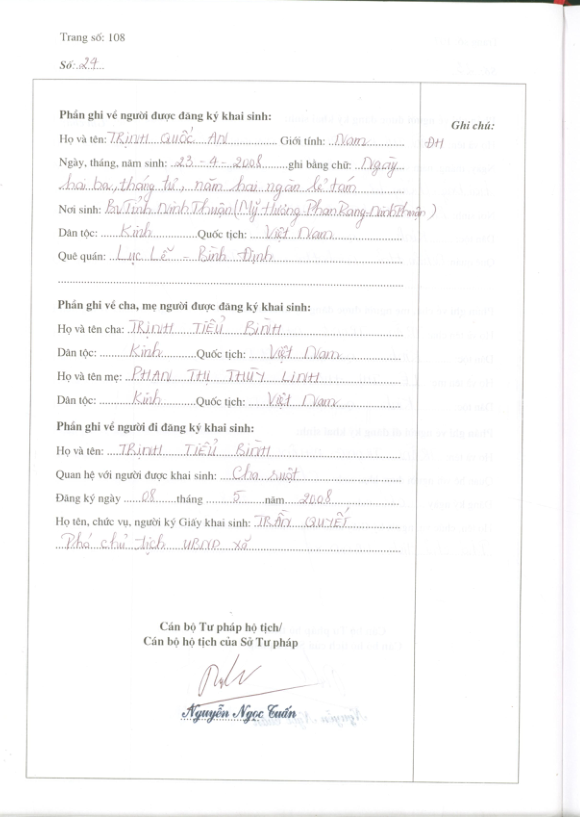 Trang số: 108
Số: 29
Phần ghi về người được đăng ký khai sinh:
Ghi chú:
Họ và tên: TRỊNH QUỐC AN Giới tính: Nam
ĐH
Ngày, tháng, năm sinh: 23 - 4 - 2008 ghi bằng chữ: Ngày
hai ba, tháng tư, năm hai ngàn lẻ tám
Nơi sinh: BV Tỉnh Ninh Thuận (Mỹ Hương Phan Rang - Ninh Thuận)
Dân tộc: Kinh Quốc tịch: Việt Nam
Quê quán: Lục Lễ - Bình Định
Phần ghi về cha, mẹ người được đăng ký khai sinh:
Họ và tên cha: TRỊNH TIỂU BÌNH
Dân tộc: Kinh Quốc tịch: Việt Nam
Họ và tên mẹ: PHAN THỊ THÙY LINH
Dân tộc: Kinh Quốc tịch: Việt Nam
Phần ghi về người đi đăng ký khai sinh:
Họ và tên: TRỊNH TIỂU BÌNH
Quan hệ với người được khai sinh: Cha ruột
Đăng ký ngày 08 tháng 5 năm 2008
Họ tên, chức vụ, người ký Giấy khai sinh: TRẦN QUYẾT
Phó chủ tịch UBND xã
Cán bộ Tư pháp hộ tịch/
Cán bộ hộ tịch của Sở Tư pháp
Nguyễn Ngọc Tuấn